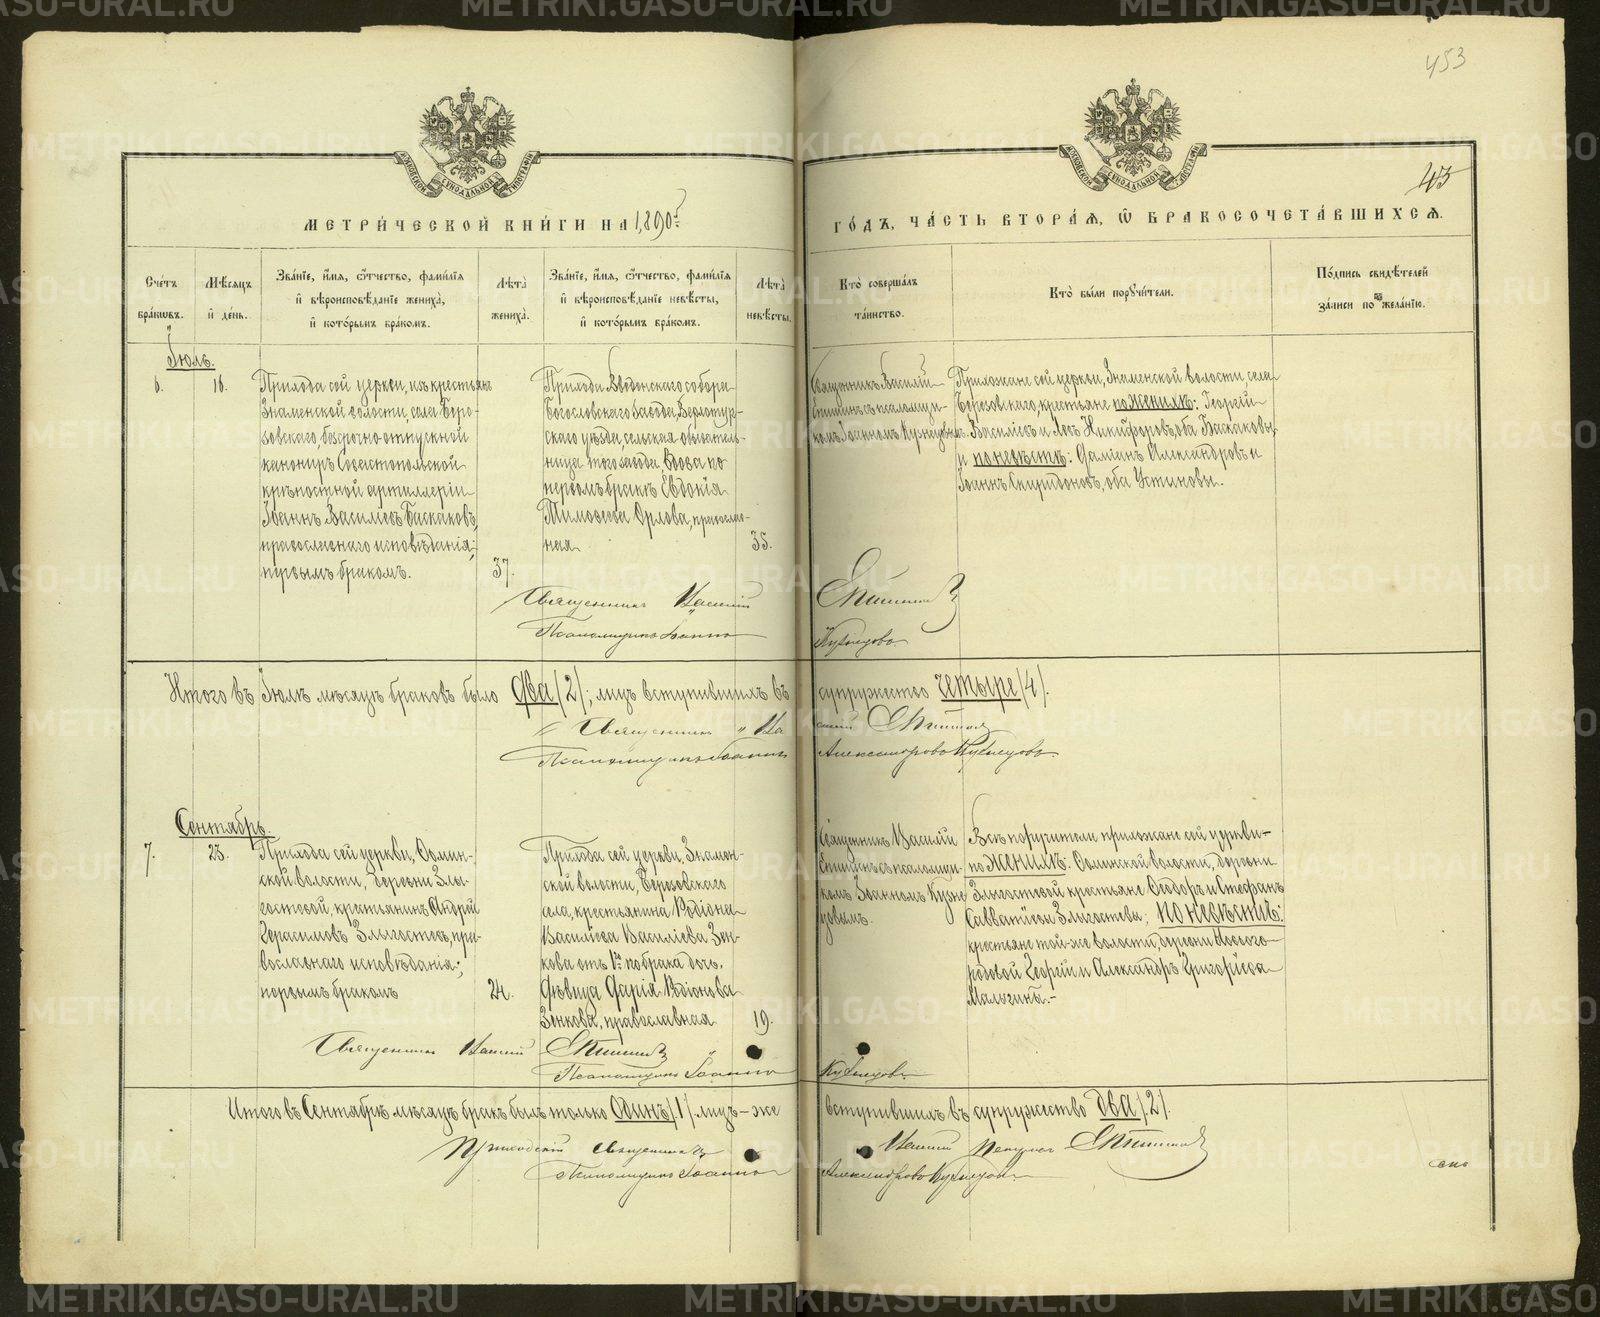 453
43
МОСКОВСКОЙ СѴНОДАЛЬНОЙ ТИПОГРАФІИ
МОСКОВСКОЙ СѴНОДАЛЬНОЙ ТИПОГРАФІИ
МЕТРИ́ЧЕСКОЙ КНИ́ГИ НА 1,890й
ГО́ДЪ, ЧА́СТЬ ВТОРА́Ѧ, Ѽ БРАКОСОЧЕТА́ВШИХСѦ.
Сче́тъ бра́кѡвъ.
Мѣ́сяцъ и҆ де́нь.
Зва́нїе, и҆́мя, ѻ҆́тчество, фами́лїя и҆ вѣроисповѣ́данїе жениха̀, и҆ кото́рымъ бра́комъ.
Лѣта̀ жениха̀.
Зва́нїе, и҆́мя, ѻ҆́тчество, фами́лїя и҆ вѣроисповѣ́данїе невѣ́сты, и҆ кото́рымъ бра́комъ.
Лѣта̀ невѣ́сты.
Кто̀ соверша́лъ та́инство.
Кто̀ бы́ли порꙋчи́тели.
По́дпись свидѣ́телей за́писи по жела́нїю.
Іюль.
6.
16.
Прихода сей церкви, изъ крестьянъ
Знаменской волости, села Бере-
зовскаго, безсрочно-отпускной
канониръ Севастопольской
крѣпостной артиллеріи
Іоаннъ Василіевъ Баскаковъ,
православнаго исповѣданія;
первымъ бракомъ.
37.
Прихода Введенскаго собора
Богословскаго завода, Верхотур-
скаго уѣзда, сельская обыватель-
ница того завода, вдова по
первомъ бракѣ Евдокія
Тимоѳеева Орлова, православ-
ная
35.
Священникъ Василій
Епишинъ съ псаломщи-
комъ Іоанномъ Кузнецовымъ.
Прихожане сей церкви, Знаменской волости, села
Березовскаго, крестьяне по женихѣ: Георгій
Василіевъ и Левъ Никифоровъ, оба Баскаковы,
и по невѣстѣ: Даміанъ Александровъ и
Іоаннъ Спиридоновъ, оба Устиновы.
Священникъ Василій Епишинъ
Псаломщикъ Іоаннъ Кузнецовъ
Итого въ Іюлѣ мѣсяцѣ браковъ было два /2/; лицъ вступившихъ въ супружество четыре /4/.
Священникъ Василій Епишинъ
Псаломщикъ Іоаннъ Александровъ Кузнецовъ.
Сентябрь.
7.
23.
Прихода сей церкви,
ской волости, деревни Злы-
гостевой, крестьянинъ Андрей
Герасимовъ Злыгостевъ, пра-
вославнаго исповѣданія;
первымъ бракомъ
24.
Прихода сей церкви, Знамен-
ской волости, Березовскаго
села, крестьянина Родіона
Василіева Василіева Зен-
кова отъ 1го по брака дочь,
дѣвица Дарія Родіонова
Зенкова, православная
19.
Священникъ Василій
Епишинъ съ псаломщи-
комъ Іоанномъ Кузне-
цовымъ.
Всѣ поручители прихожане сей церкви-
по женихѣ: волости, деревни
Злыгостевой крестьяне Ѳеодоръ и Стефанъ
Савватіевы Злыгостевы; по невѣстѣ:
крестьяне той-же волости, деревни Нового-
родовой Георгій и Александръ Григоріевы
Мальгины.-
Священникъ Василій Епишинъ
Псаломщикъ Іоаннъ Кузнецовъ
Итого въ Сентябрѣ мѣсяцѣ бракъ былъ только одинъ /1/ лицъ-же вступившихъ въ супружество два /2/.
Приходскій Священникъ Василій Епишинъ
Псаломщикъ Іоаннъ Александровъ Кузнецовъ
METRIKI.GASO-URAL.RU